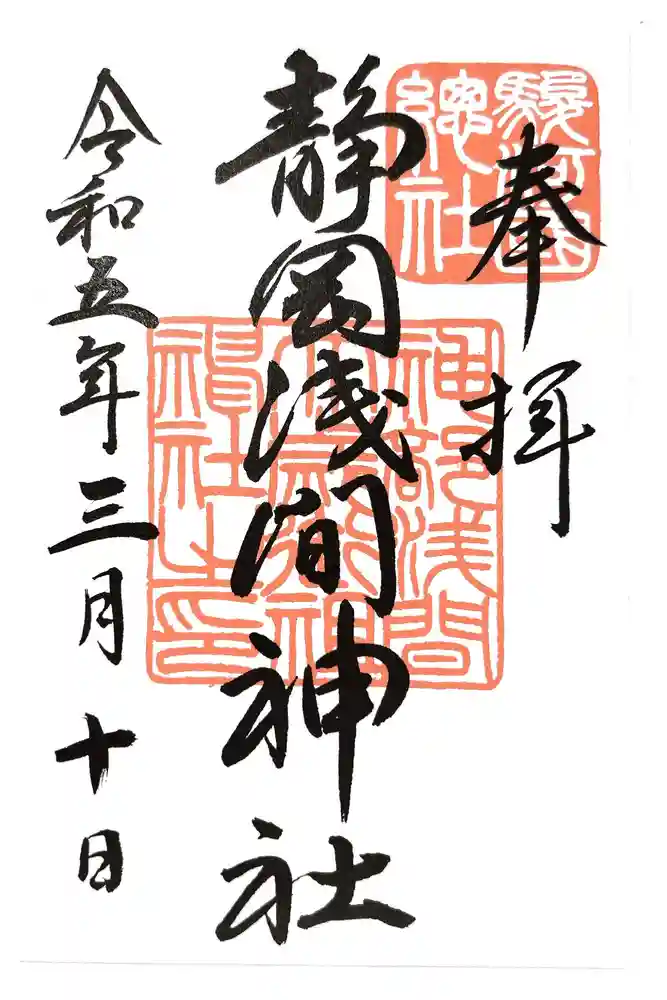 奉拝
駿河國
總社
静岡浅間神社
神部浅間
神社之印
令和五年三月十日